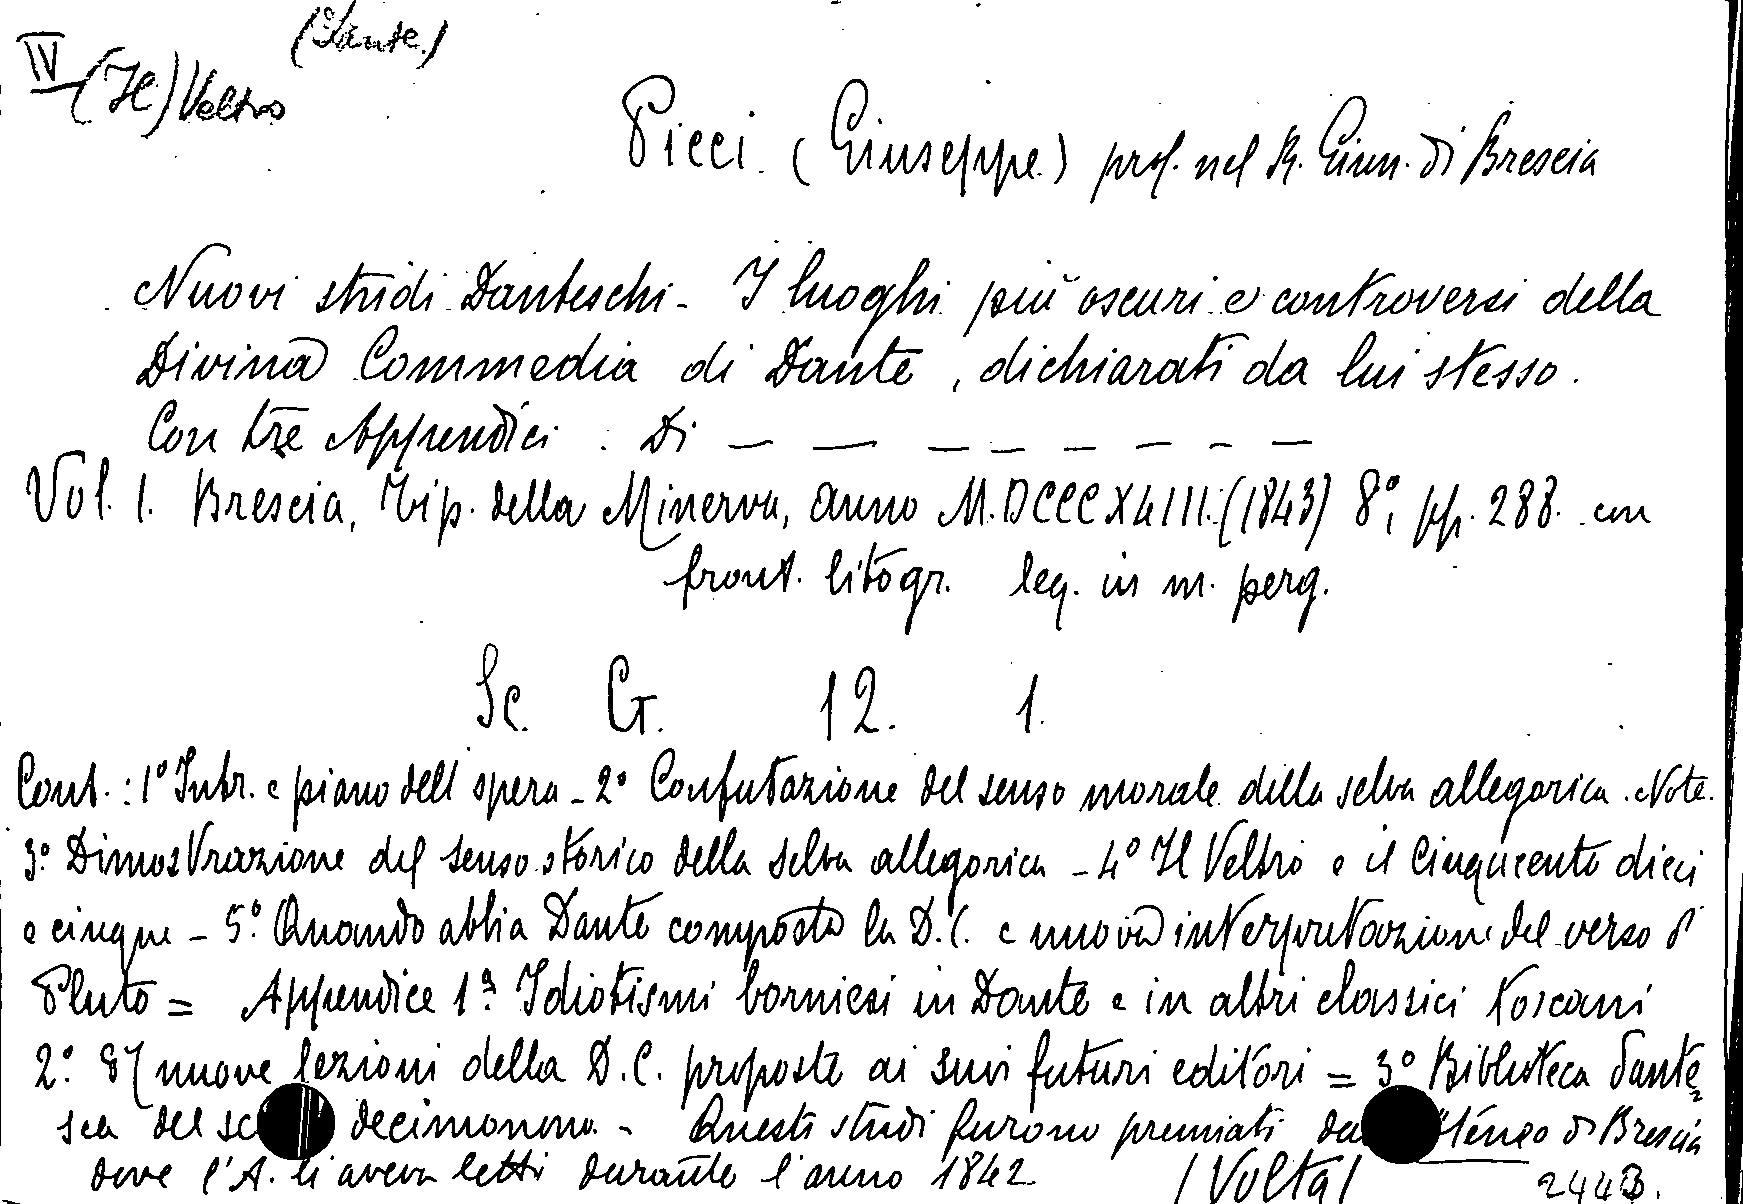 (Dante.)
IV (Il) Veltro
Picci. (Giuseppe.) prof. nel R. Ginn. di Brescia
Nuovi studi Danteschi - I luoghi più oscuri e controversi della
Divina Commedia di Dante, dichiarati da lui stesso.
Con tre Appendici. Di — — — — — — — — —
Vol. I. Brescia, Tip. della Minerva, anno M.DCCCXLIII. (1843) 8°, pp. 288. con
front. litogr. leg. in m. perg.
Sc. G. 12. 1.
Cont.: 1° Intr. e piano dell'opera - 2° Confutazione del senso morale della selva allegorica. Note.
3° Dimostrazione del senso storico della selva allegorica - 4° Il Veltro e il Cinquecento dieci
e cinque - 5° Quando abbia Dante composta la D.C. e nuova interpretazione del verso di
Pluto = Appendice 1ª Idiotismi borniesi in Dante e in altri classici toscani
2° nuove lezioni della D.C. proposte ai suoi futuri editori = 3° Biblioteca Dante=
sca del decimonono. - Questi studi furono premiati Ateneo di Brescia
dove l'A. li aveva letti durante l'anno 1842 (Volta) 2443.